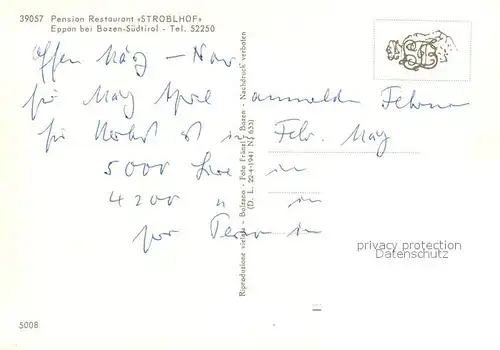 39057 Pension Restaurant «STROBLHOF»
Eppan bei Bozen-Südtirol - Tel. 52250
offen März – Nov
für März April anmelden Februar
für Herbst ist in Febr. März
5000 Lire
4200 " in
per Person
Riproduzione vietata - Bolzano - Foto Fränzl - Bozen - Nachdruck verboten
(D. L. 22-4-1941 N. 633)
privacy protection
Datenschutz
5008